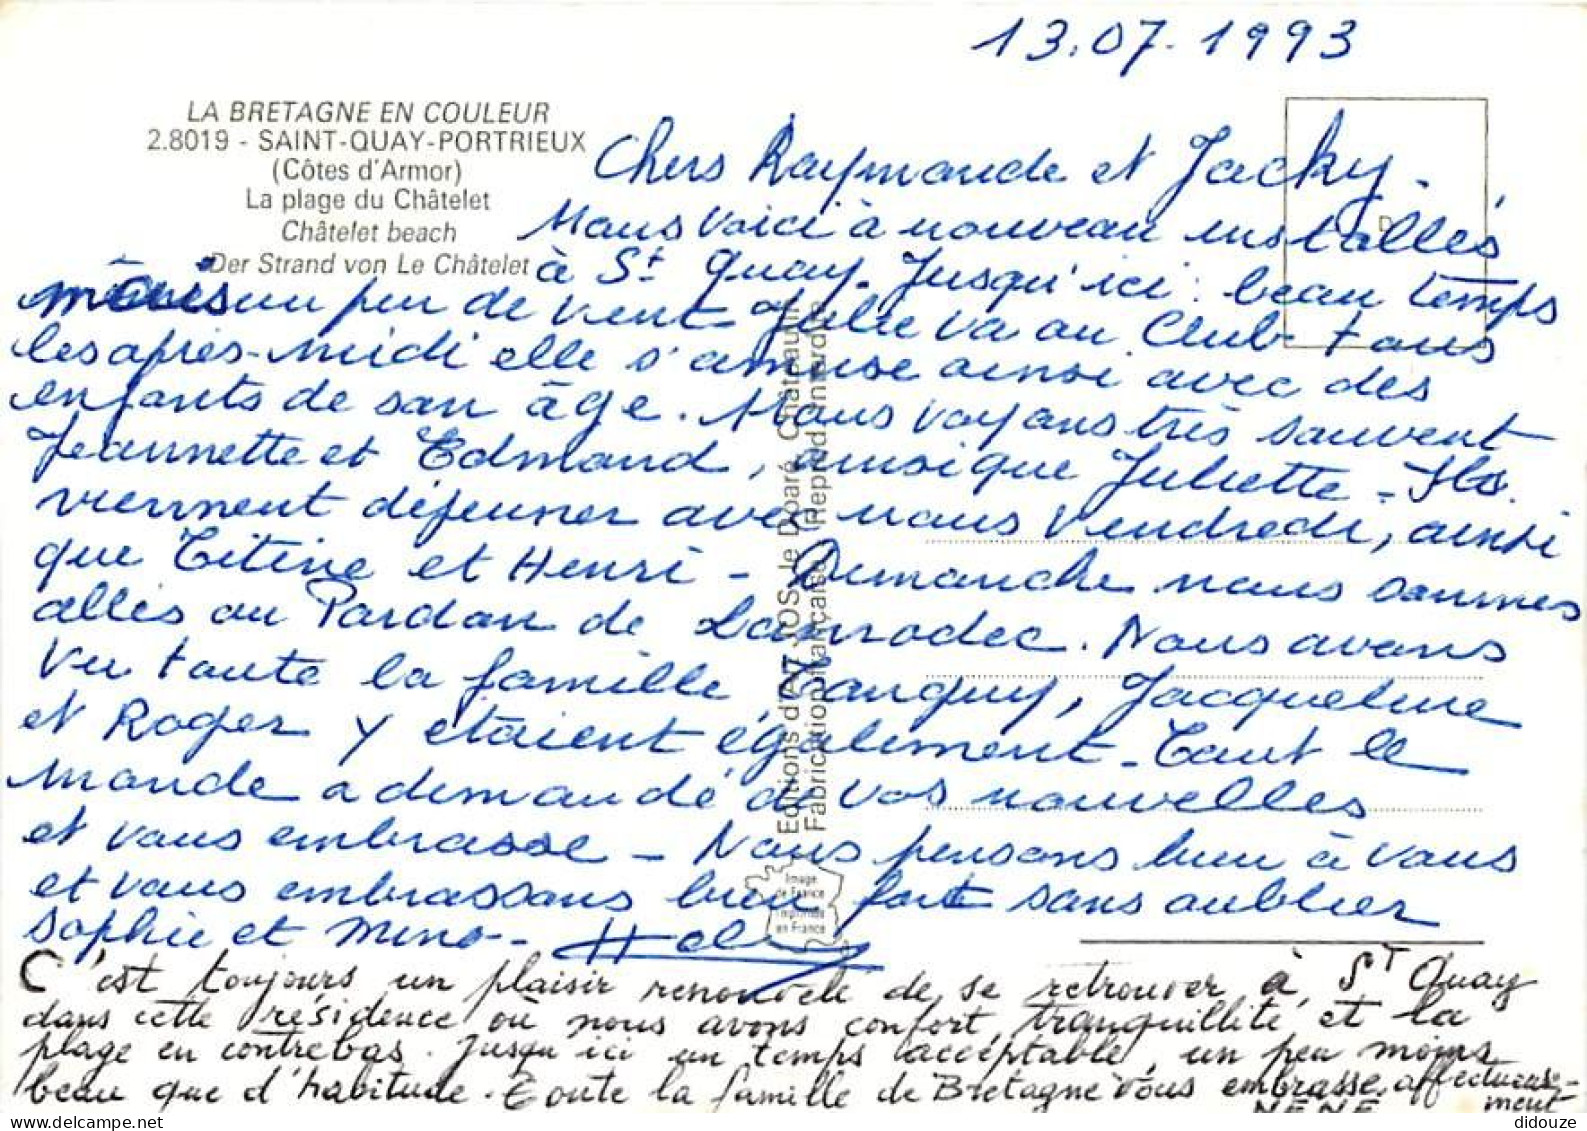 13.07.1993
LA BRETAGNE EN COULEUR
2.8019 - SAINT-QUAY-PORTRIEUX
(Côtes d'Armor)
La plage du Châtelet
Châtelet beach
Der Strand von Le Châtelet
Chers Raymonde et Jacky -
Nous voici à nouveau installés
à St Quay. Jusqu'ici : beau temps
mais un peu de vent Julie va au Club tous
les après-midi elle s'amuse ainsi avec des
enfants de son âge. Nous voyons très souvent
Jeannette et Edmond, ainsi que Juliette - Ils
viennent déjeuner avec nous Vendredi, ainsi
que Titine et Henri - Dimanche nous sommes
allés au Pardon de Lanrodec. Nous avons
vu toute la famille, Tanguy, Jacqueline
et Roger y étaient également - Tout le
monde a demandé de vos nouvelles
et vous embrasse - Nous pensons bien à vous
et vous embrassons bien fort sans oublier
Sophie et Mino -
C'est toujours un plaisir renouvelé de se retrouver à St Quay
dans cette résidence où nous avons confort, tranquillité et la
plage en contrebas. Jusqu'ici un temps acceptable, un peu moins
beau que d'habitude. Toute la famille de Bretagne vous embrasse affectueuse-
ment
NENE
D
Editions d'Art JOS le Doaré, Châteaulin
Fabrication française - Reprod. interdite
Image
de France
en France
didouze